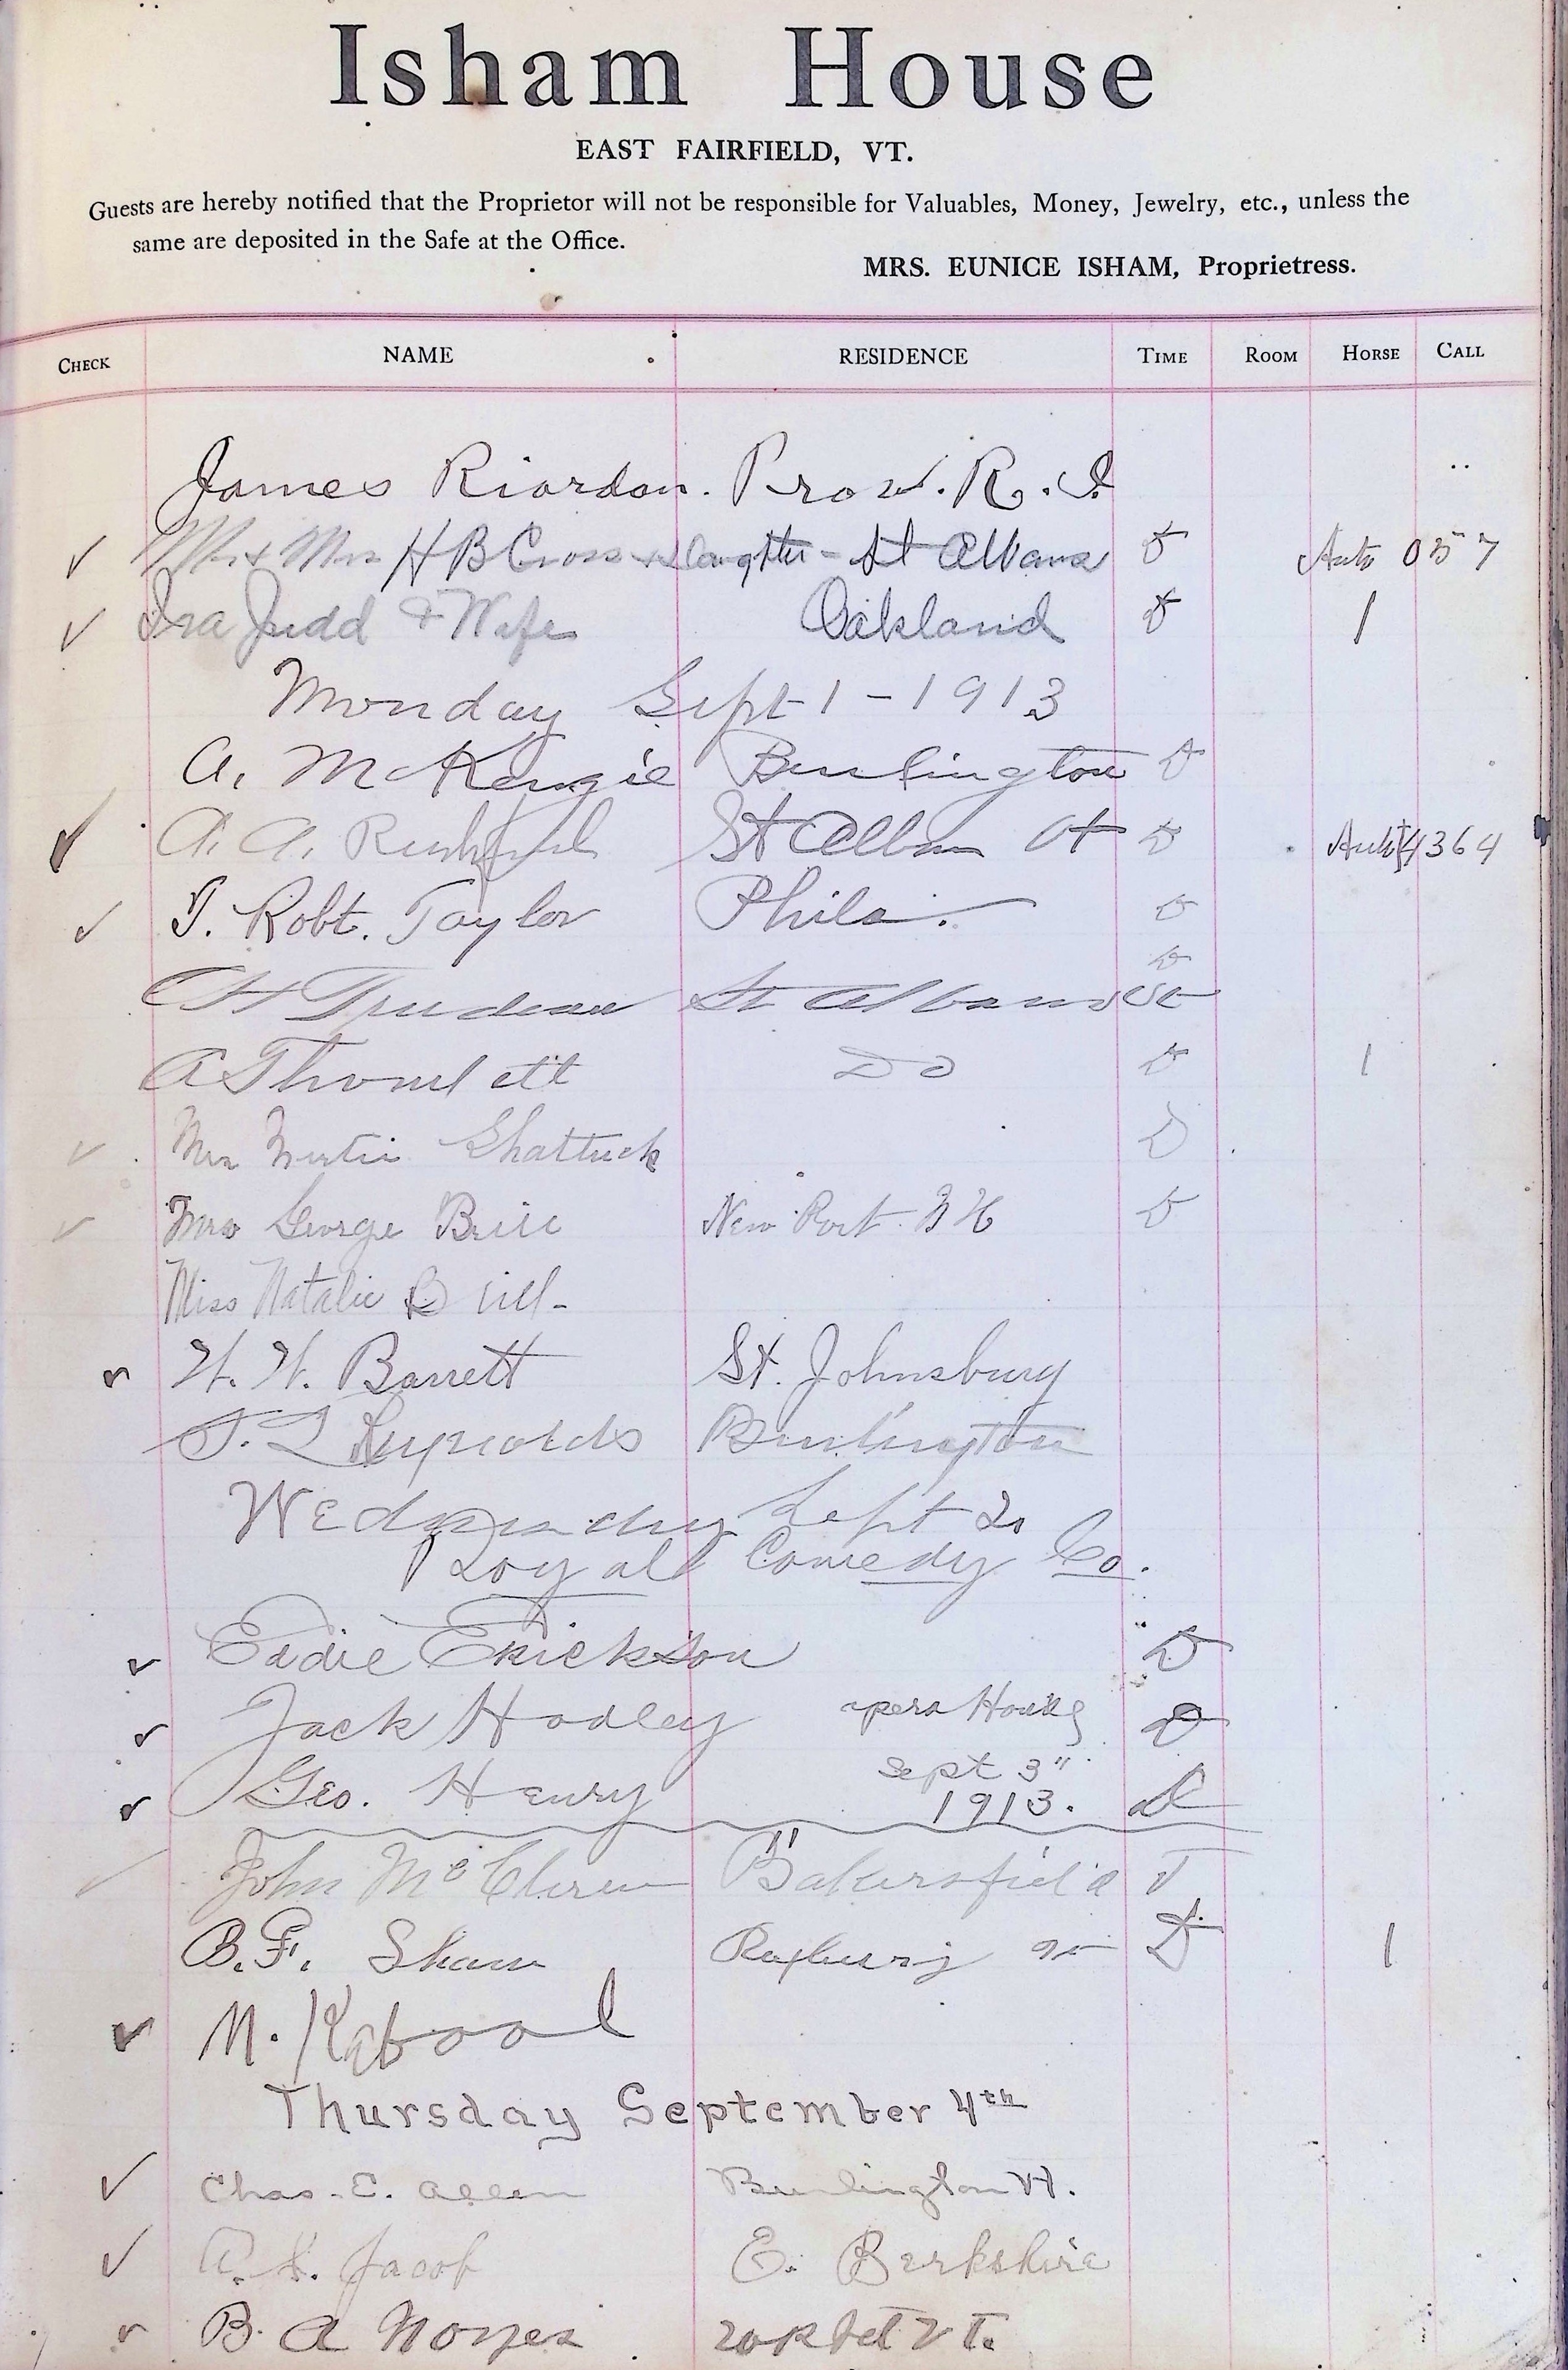 Isham House
EAST FAIRFIELD, VT.
Guests are hereby notified that the Proprietor will not be responsible for Valuables, Money, Jewelry, etc., unless the
same are deposited in the Safe at the Office.
MRS. EUNICE ISHAM, Proprietress.
CHECK NAME RESIDENCE TIME ROOM HORSE CALL
James Riordan. Prov. R. I.
Mr & Mrs H B Cross & daughter - St Albans D Auto 057
Ira Judd & Wife Oakland D 1
Monday Sept 1 - 1913
A. McKenzie Burlington D
A. A. St Albans Vt D Auto 4364
T. Robt. Taylor Phila. D
D
Trudeau St Albans Vt
A Do D 1
Mrs Shattuck D
Mrs George Brill New Port N H D
Miss Natalie Brill -
W. W. Barrett St. Johnsbury
Reynolds Burlington
Wednesday Sept
Royal Comedy Co.
Eddie Erickson D
Jack Hadley opera House D
Geo. Henry sept 3"
1913. D
John Bakersfield T
B. F. Shaw Roxbury D 1
M.
Thursday September 4th
Chas. E. Allen Burlington Vt.
Jacob E. Berkshire
B. A Noyes Vt.